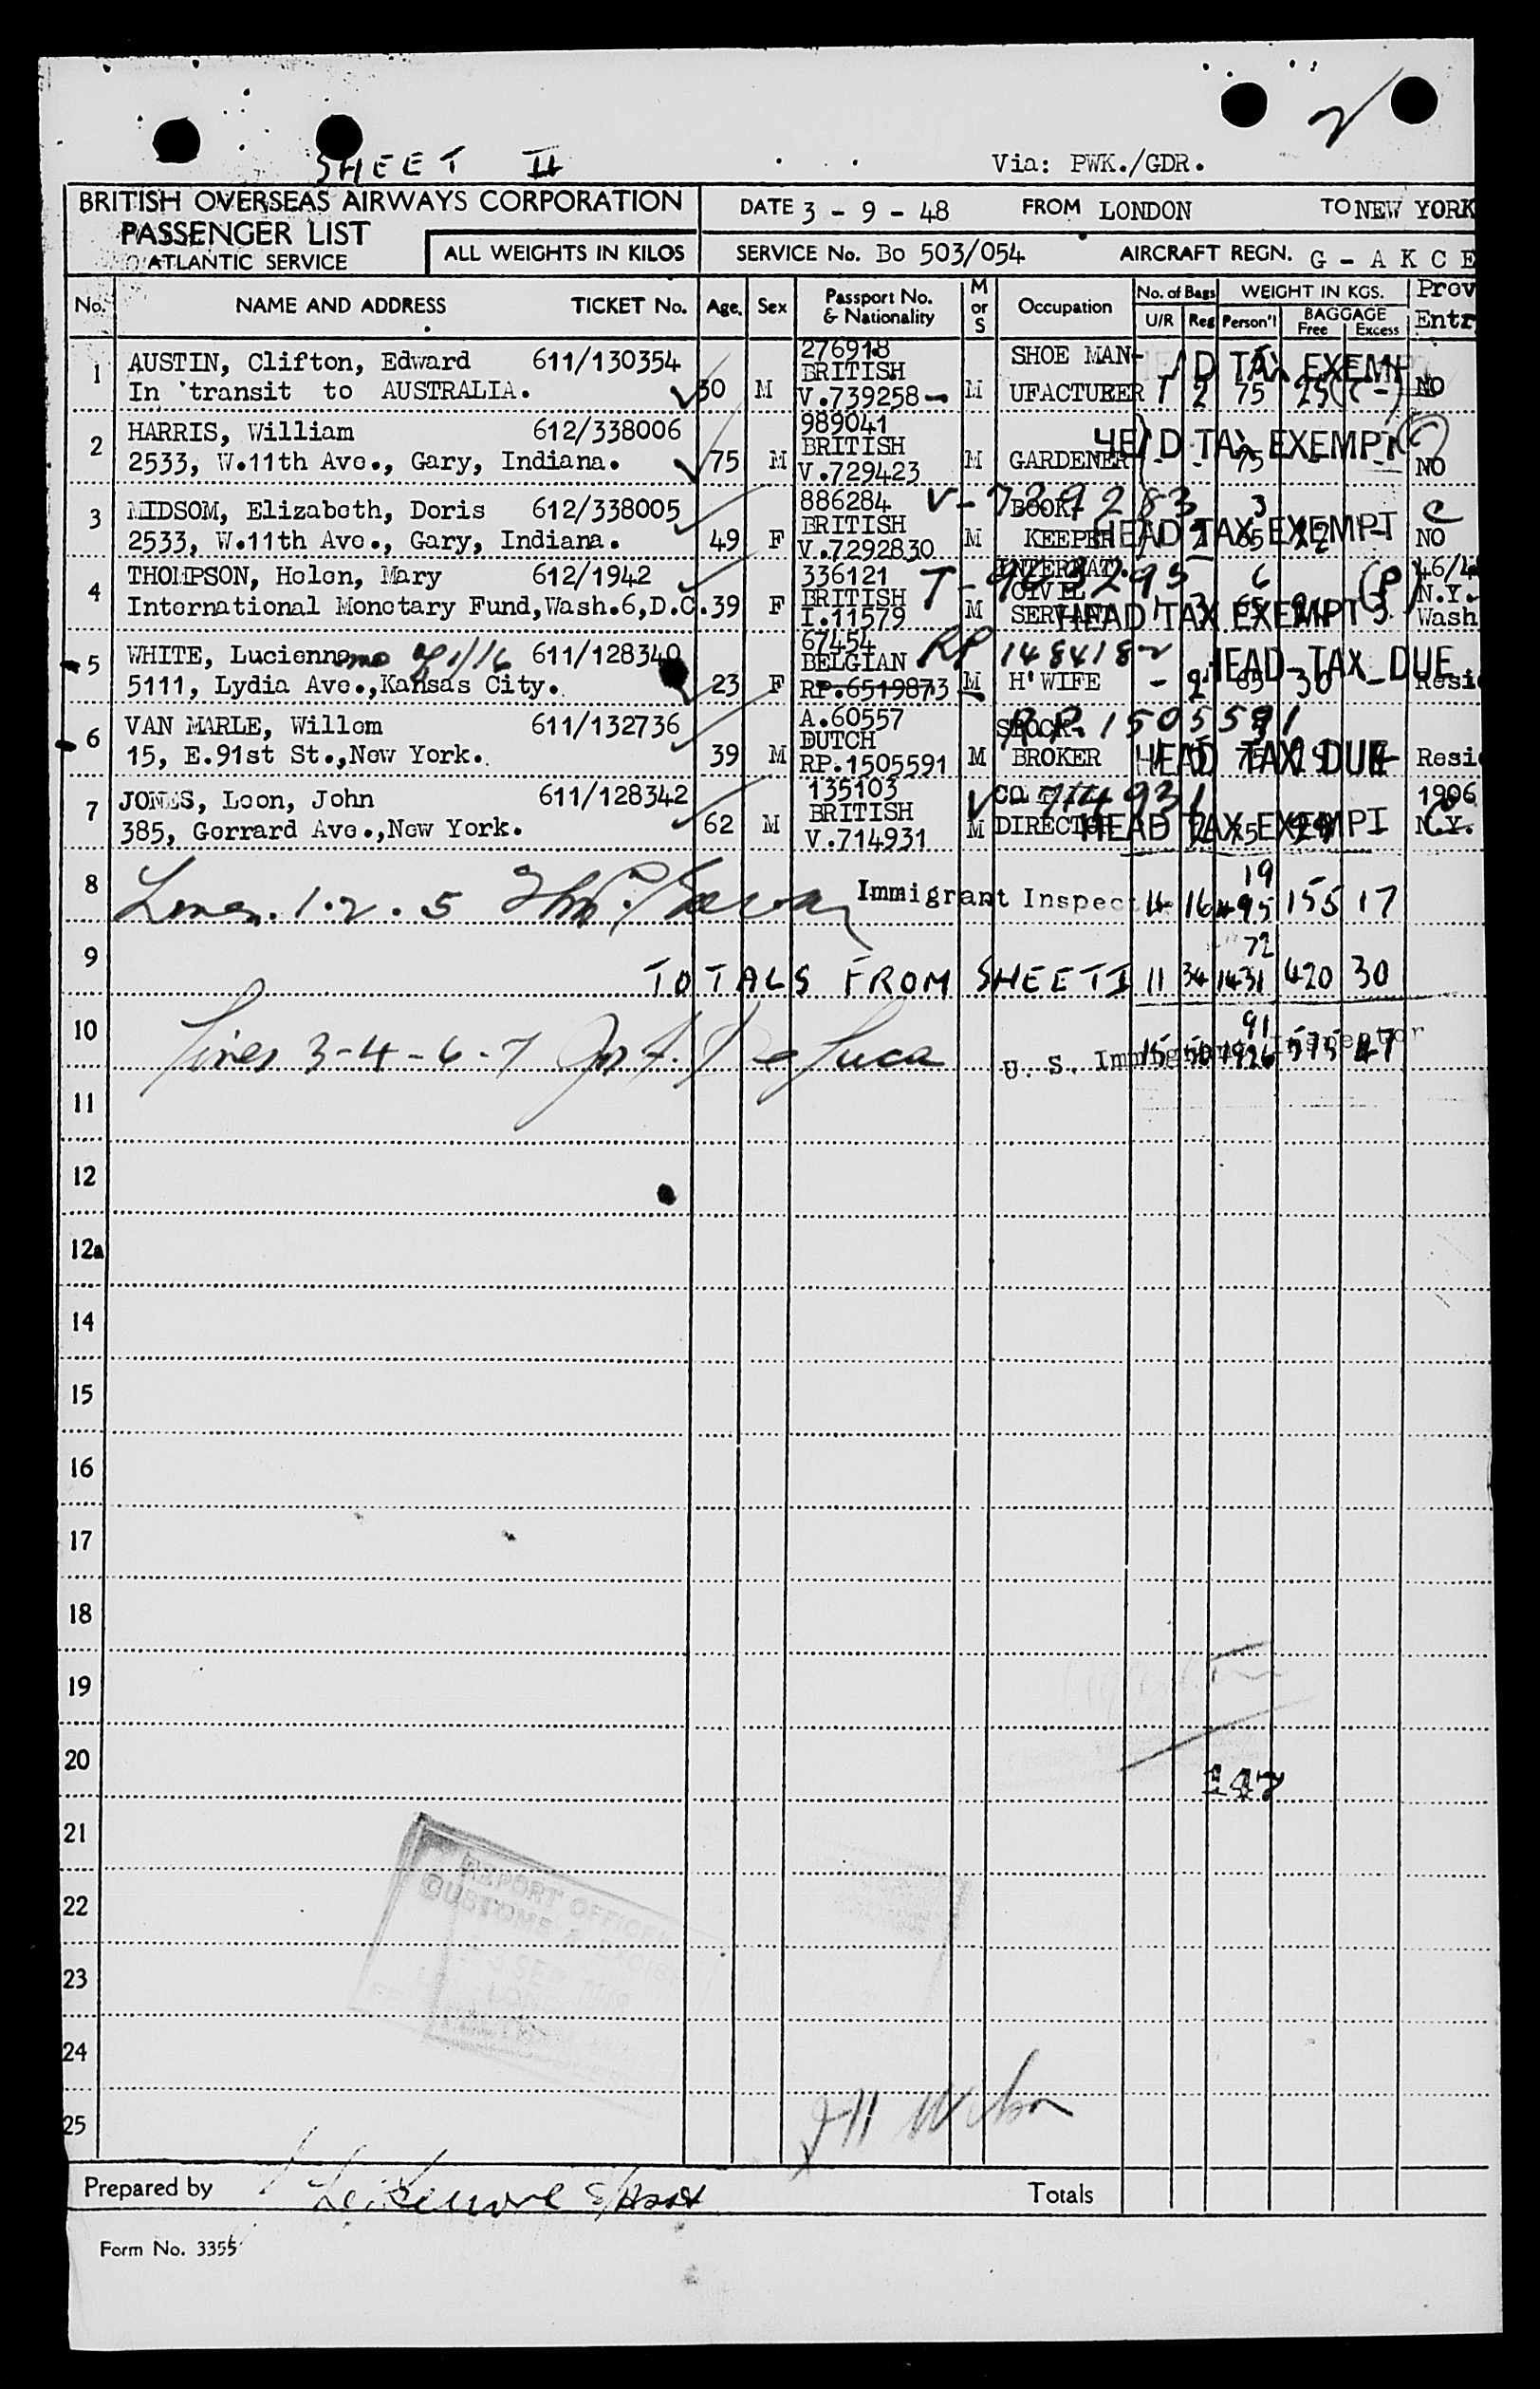 SHEET II
Via: PWK./GDR.
BRITISH OVERSEAS AIRWAYS CORPORATION
PASSENGER LIST
ATLANTIC SERVICE
ALL WEIGHTS IN KILOS
DATE 3 - 9 - 48 FROM LONDON TO NEW YORK
SERVICE No. Bo 503/054 AIRCRAFT REGN. G - A K C E
No. NAME AND ADDRESS TICKET No. Age. Sex Passport No. & Nationality M or S Occupation No. of Bags U/R Reg WEIGHT IN KGS. Person'l BAGGAGE Free Excess Prev Entr
276918
1 AUSTIN, Clifton, Edward 611/130354 BRITISH SHOE MAN- HEAD TAX EXEMP
In transit to AUSTRALIA. 30 M V.739258 M UFACTURER 1 2 75 25 NO
989041
2 HARRIS, William 612/338006 BRITISH HEAD TAX EXEMPT
2533, W.11th Ave., Gary, Indiana. 75 M V.729423 M GARDENER - - 75 - - NO
886284 V-729283
3 MIDSOM, Elizabeth, Doris 612/338005 BRITISH BOOK HEAD TAX EXEMPT
2533, W.11th Ave., Gary, Indiana. 49 F V.7292830 M KEEPER NO
4 THOMPSON, Helen, Mary 612/1942 336121 BRITISH INTERNAT. CIVIL 6 (P) 46/4
International Monetary Fund,Wash.6,D.C. 39 F I.11579 M SERVANT HEAD TAX EXEMPT N.Y. Wash
67454
5 WHITE, Lucienne 611/128340 BELGIAN RP 148418 HEAD TAX DUE
5111, Lydia Ave.,Kansas City. 23 F RP.6519873 M H'WIFE - 2 65 30 - Resi
A.60557
6 VAN MARLE, Willem 611/132736 DUTCH STOCK R.P. 1505591
15, E.91st St.,New York. 39 M RP.1505591 M BROKER HEAD TAX DUE Resi
135103
7 JONES, Leon, John 611/128342 BRITISH CO V-714931 1906
385, Gerrard Ave.,New York. 62 M V.714931 M DIRECTOR HEAD TAX EXEMPT N.Y.
19
8 Lines. 1.2.5 Immigrant Inspec 16 495 155 17
72
9 TOTALS FROM SHEET I 11 34 1431 420 30
91
10 Lines 3-4-6-7 De Luca U. S. Immigrant Inspector 15 50 1926 575 47
11
12
12a
14
15
16
17
18
19
20
21
22
23
24
25
REPORT OFFICE
CUSTOMS & EXCISE
3 SEP 1948
Prepared by Totals
Form No. 3355